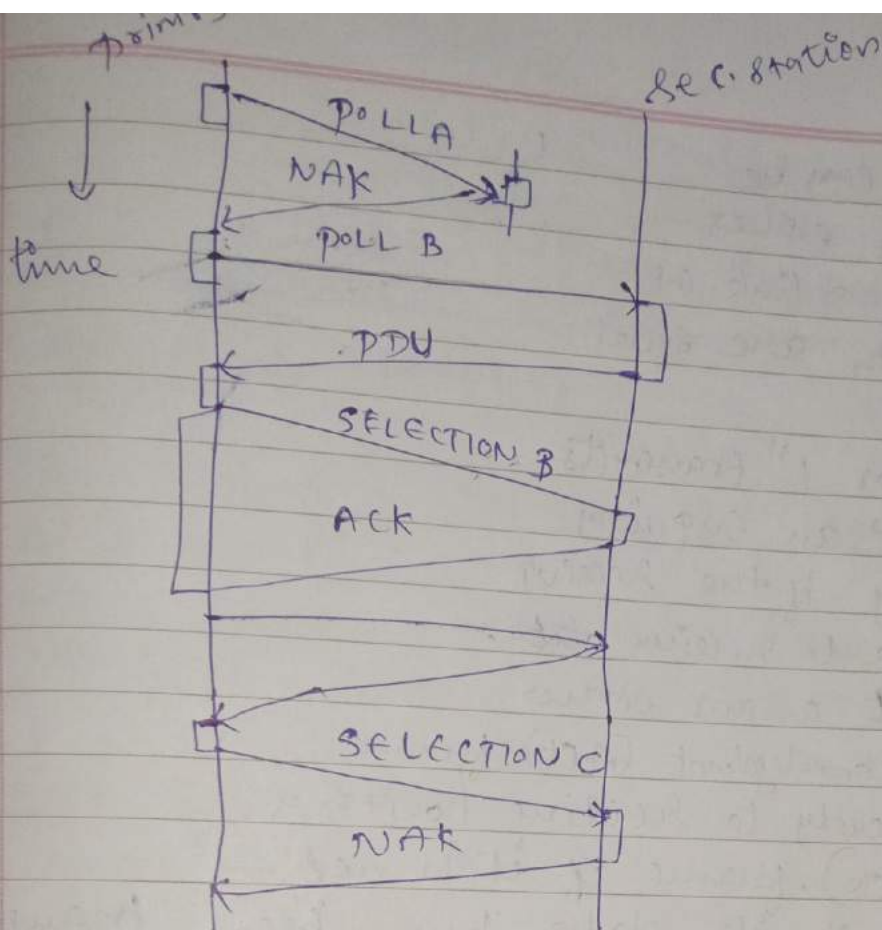 Sec. station
POLL A
NAK
POLL B
time
PDU
SELECTION B
ACK
SELECTION C
NAK